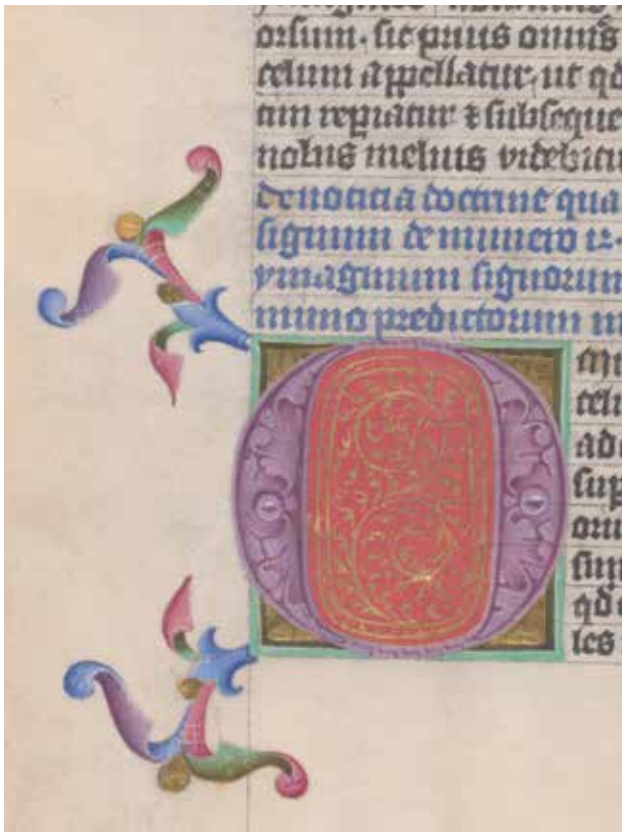 orsum. sic prius omnis
celum appellatur, ut qd
tim repiatur & subseque
nobis melius videbitu
de noticia doctrine qua
signum de numero 12.
ymaginum signorum
mino predictorum in
O
celu
ade
sup
oriu
sun
qd
les